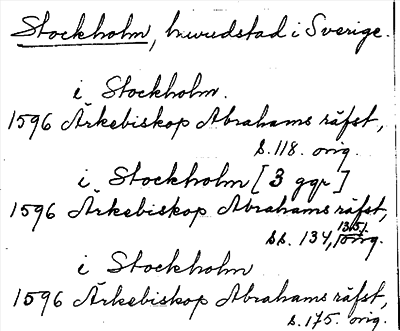 Stockholm, huvudstad i Sverige.
i Stockholm.
1596 Ärkebiskop Abrahams räfst,
s. 118. orig.
i Stockholm [3 ggr]
1596 Ärkebiskop Abrahams räfst,
ss. 134, 135, orig.
i Stockholm
1596 Ärkebiskop Abrahams räfst,
s. 175. orig.